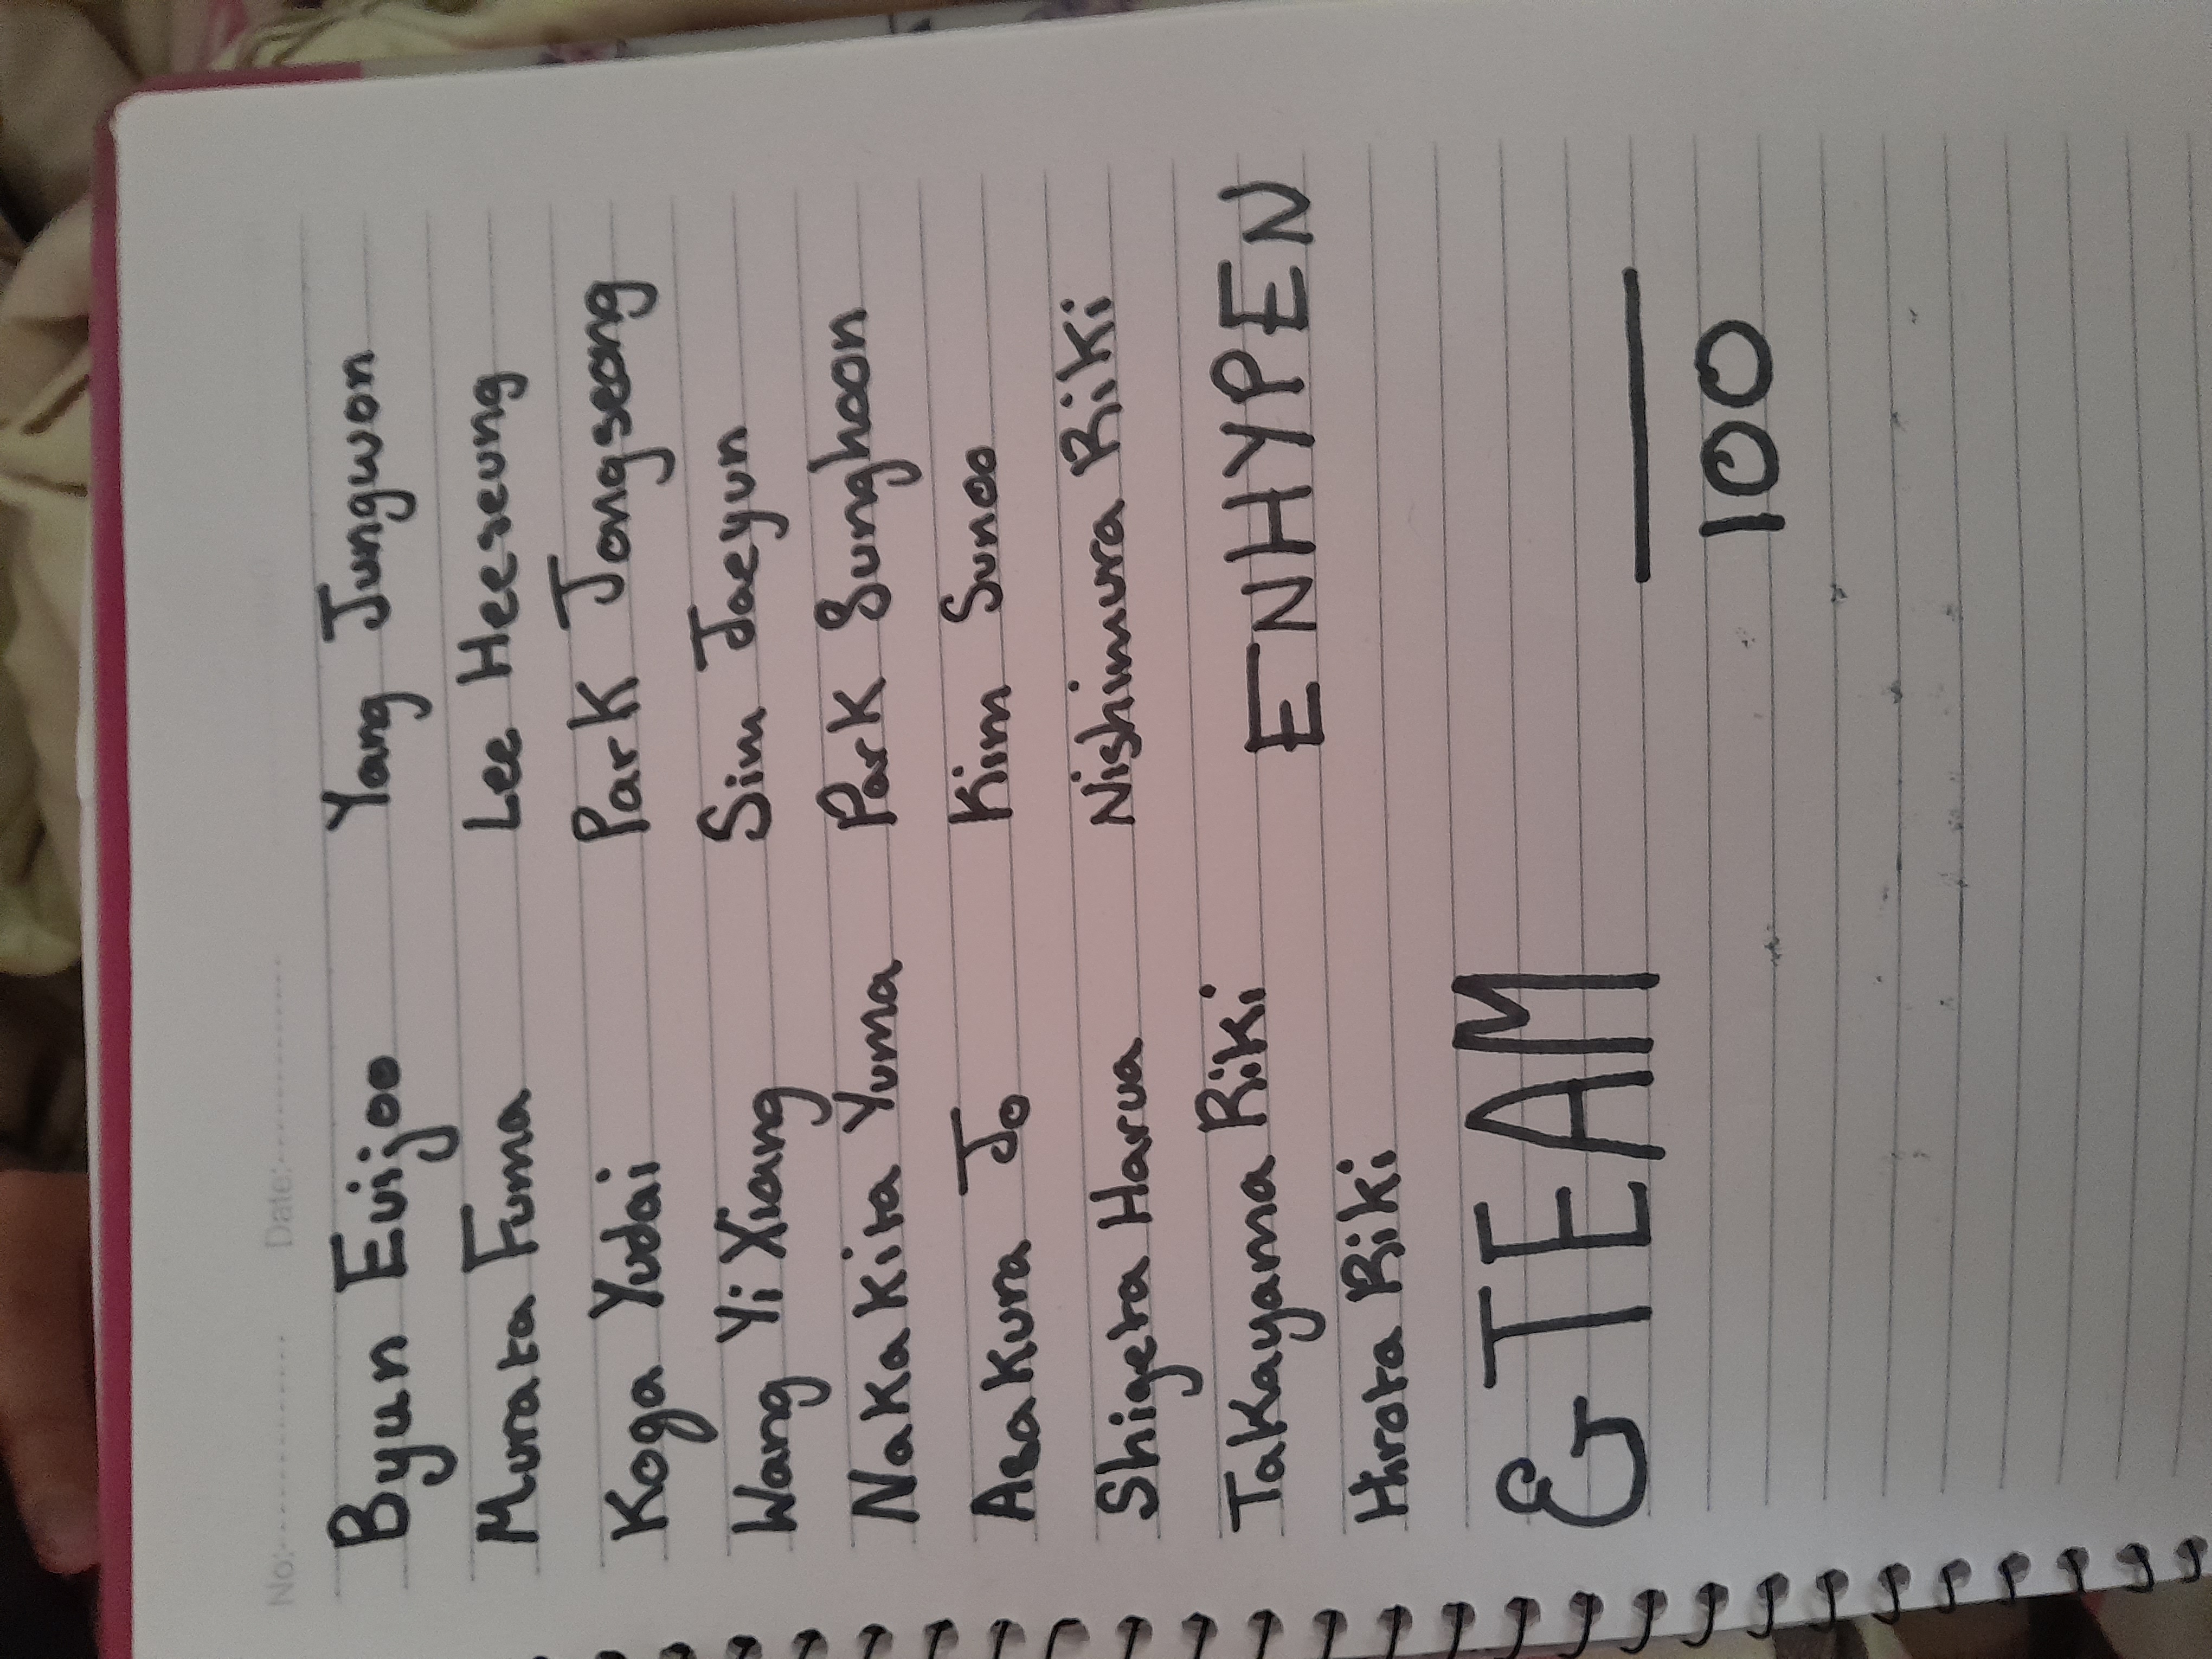 No: Date:
Byun Euijoo Yang Jungwon
Murata Fuma Lee Heeseung
Koga Yudai Park Jongseong
Wang Yi Xiang Sim Jaeyun
Nakakita Yuma Park Sunghoon
Asakura Jo Kim Sunoo
Shigeta Harua Nishimura Riki
Takayama Riki ENHYPEN
Hirota Riki
&TEAM
100